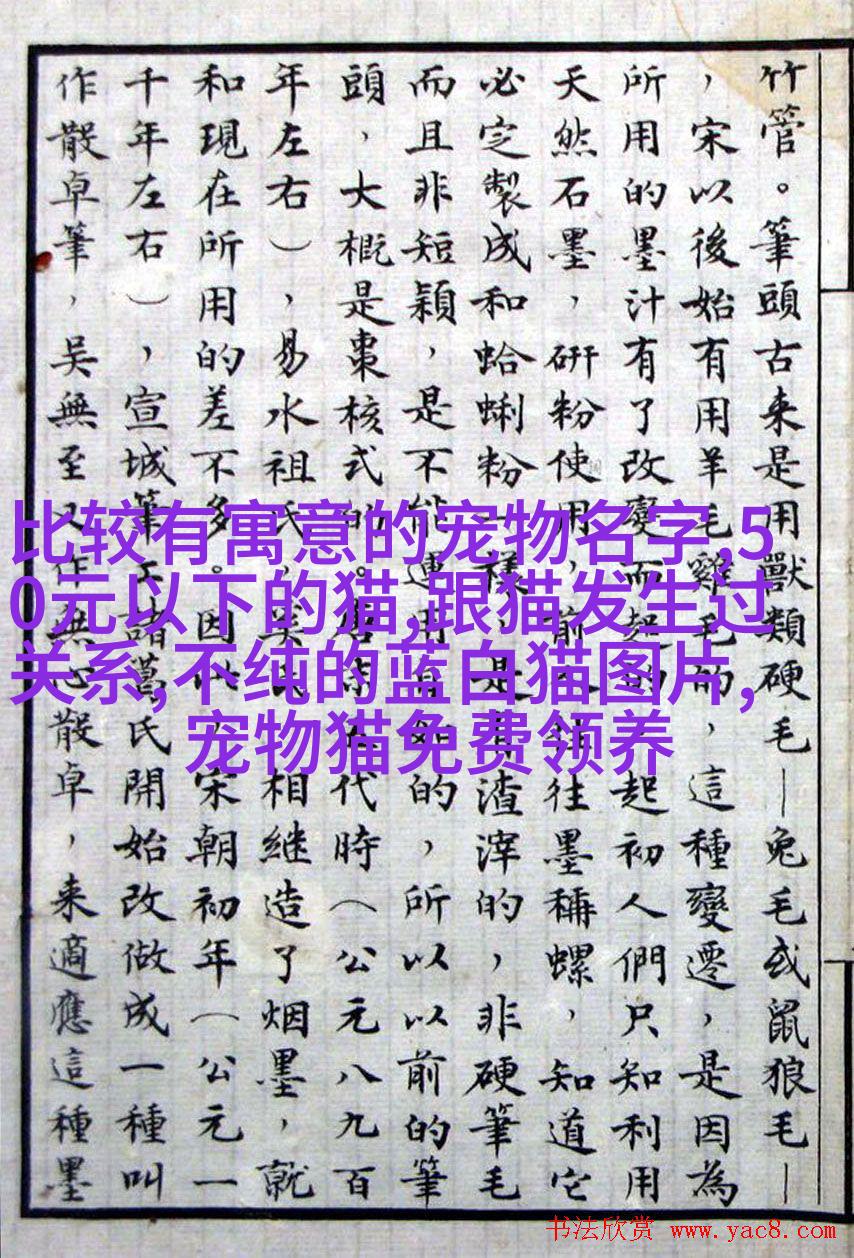 竹管。筆頭古来是用獸類硬毛—兔毛或鼠狼毛—
，宋以後始有用羊毛雞毛的，這種變遷，是因為
所用的墨汁有了改變而起的起初人們只知利用
天然石墨，研粉使用，前往往墨稱螺，知道它
必定製成和蛤蜊粉一樣，是有渣滓的，非硬筆毛
而且非短穎，是不能連用自如的，所以以前的筆
頭，大概是棗核式的。唐末代時（公元八九百
年左右），易水祖氏，奚氏相继造了烟墨，就
和現在所用的差不多。因以宋朝初年（公元一
千年左右），宣城筆工諸葛氏開始改做成一種叫
作散卓筆，吴無至又作無心散卓，来適應這種墨
比较有寓意的宠物名字,5
0元以下的猫,跟猫发生过
关系,不纯的蓝白猫图片,
宠物猫免费领养
书法欣赏 www.yac8.com